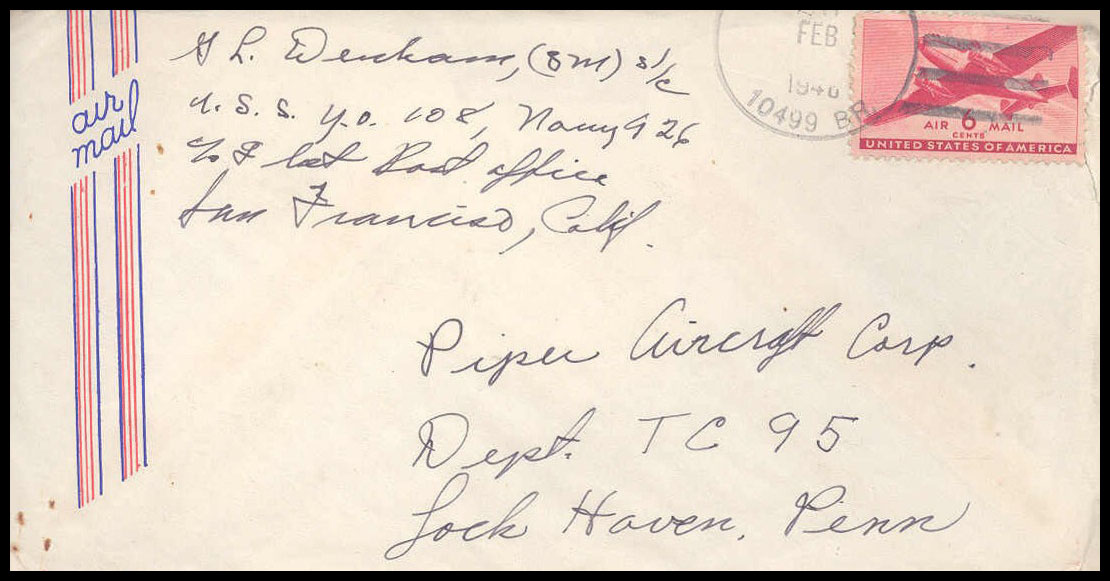 air
mail
G L. Denham, (BM) S/C
U. S. S. Y.O. 108, Navy 926
c/o Fleet Post office
San Francisco, Calif.
FEB
1946
10499 BR.
AIR 6 MAIL
CENTS
UNITED STATES OF AMERICA
Piper Aircraft Corp.
Dept. TC 95
Lock Haven, Penn